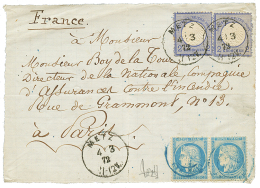 France.
à Monsieur
Monsieur Boy de la Tour
Directeur de la Nationale Compagnie
d'Assurances contre l'incendie
Rue de Grammont, N° 13.
à Paris
METZ
4 3
72
METZ
4 3
72
11-12V.